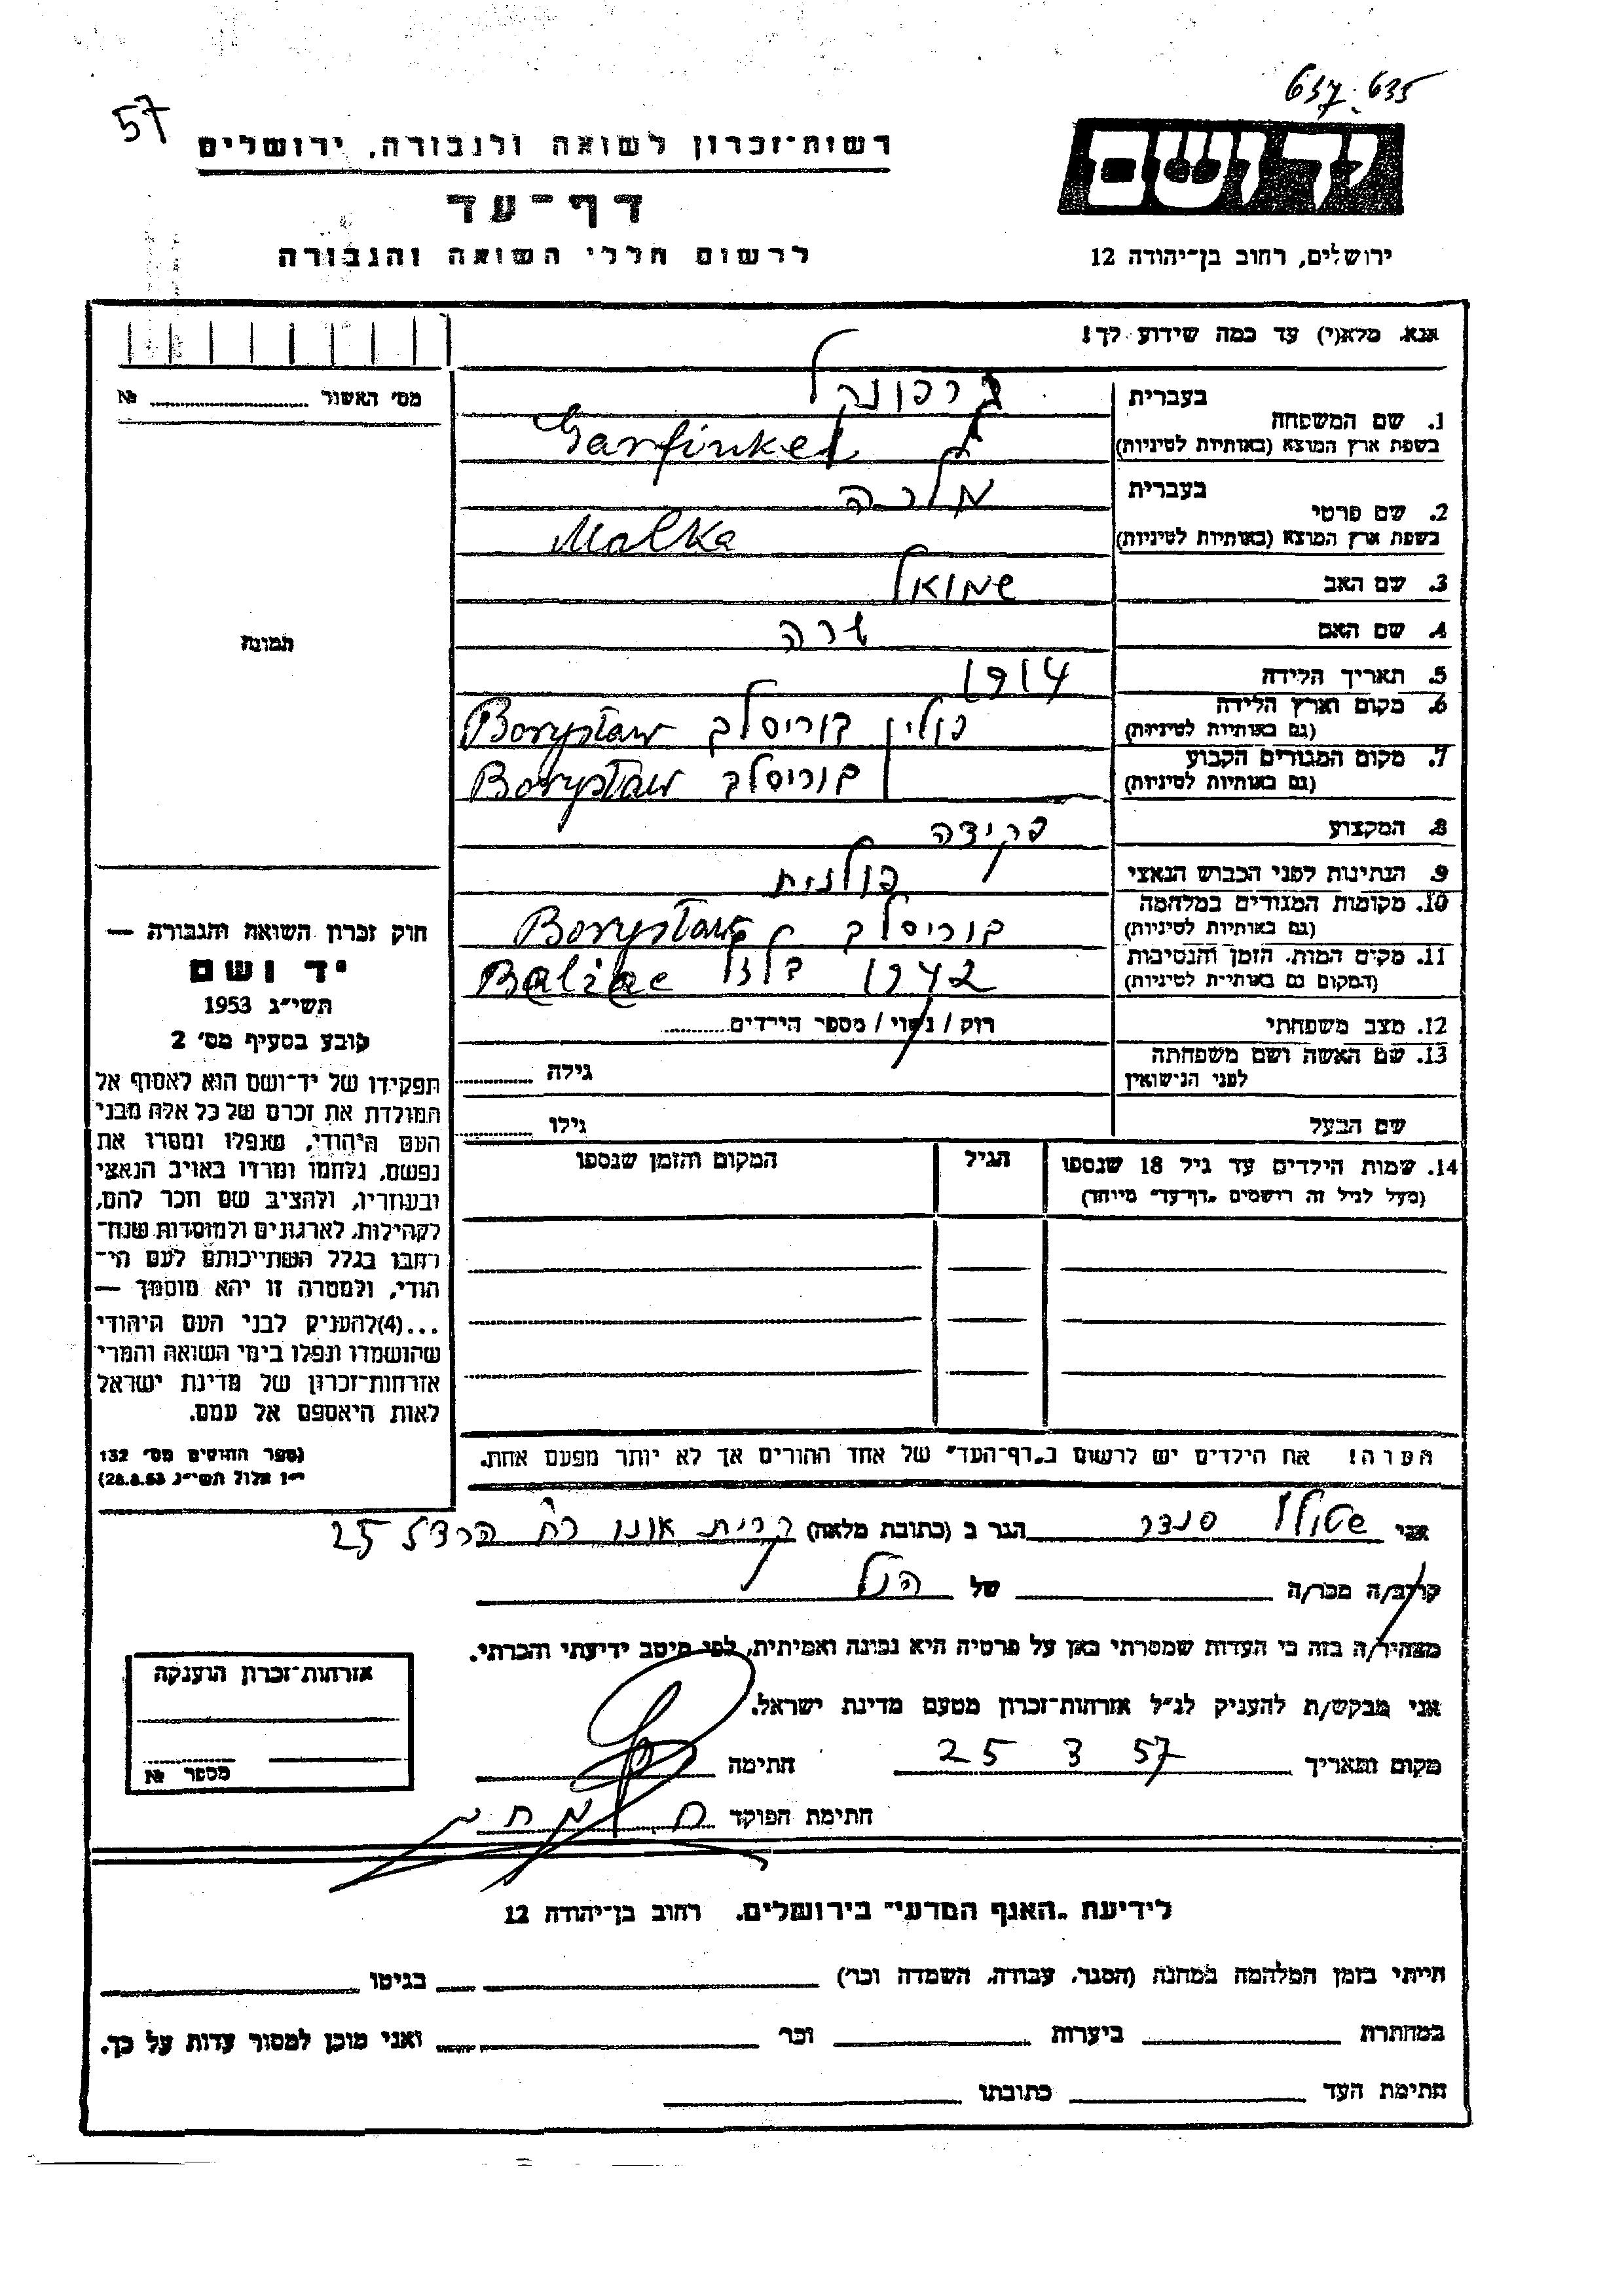 637-635
57
רשות-זכרון לשואה ולגבורה, ירושלים
יד ושם
דף-עד
לרשום חללי השואה והגבורה
ירושלים, רחוב בן-יהודה 12
אנא, מלא(י) עד כמה שידוע לך!
מס׳ האשור № 
1. שם המשפחה
בעברית
בשפת ארץ המוצא (באותיות לטיניות)
Garfinkel
2. שם פרטי
בעברית מלכה
בשפת ארץ המוצא (באותיות לטיניות)
Malka
3. שם האב שמואל
4. שם האם שרה
תמונה
5. תאריך הלידה 1914
6. מקום וארץ הלידה
(גם באותיות לטיניות)
פולין בוריסלב Borystaw
7. מקום המגורים הקבוע
(גם באותיות לטיניות)
בוריסלב Borystaw
8. המקצוע פקידה
9. הנתינות לפני הכבוש הנאצי פולנית
10. מקומות המגורים במלחמה
(גם באותיות לטיניות)
בוריסלב Borystaw
11. מקום המות, הזמן והנסיבות
(המקום גם באותיות לטיניות)
1942 בלזץ Balzec
12. מצב משפחתי רוק / נשוי / מספר הילדים
13. שם האשה ושם משפחתה
לפני הנישואין
גילה
שם הבעל גילו
14. שמות הילדים עד גיל 18 שנספו
(מעל לגיל זה רושמים „דף-עד״ מיוחד)
הגיל
המקום והזמן שנספו
הערה! את הילדים יש לרשום ב„דף-העד״ של אחד ההורים אך לא יותר מפעם אחת.
חוק זכרון השואה והגבורה —
יד ושם
תשי״ג 1953
קובע בסעיף מס׳ 2
תפקידו של יד-ושם הוא לאסוף אל
המולדת את זכרם של כל אלה מבני
העם היהודי, שנפלו ומסרו את
נפשם, נלחמו ומרדו באויב הנאצי
ובעוזריו, ולהציב שם וזכר להם,
לקהילות, לארגונים ולמוסדות שנח-
רבו בגלל השתייכותם לעם הי-
הודי, ולמטרה זו יהא מוסמך —
...(4)להעניק לבני העם היהודי
שהושמדו ונפלו בימי השואה והמרי
אזרחות-זכרון של מדינת ישראל
לאות היאספם אל עמם.
(ספר החוקים מס׳ 132
י״ז אלול תשי״ג 28.8.53)
אני סנדר הגר ב (כתובת מלאה) קרית אונו רח הברזל 25
קרוב/ה מכר/ה של הנ״ל
מצהיר/ה בזה כי העדות שמסרתי כאן על פרטיה היא נכונה ואמיתית, לפי מיטב ידיעתי והכרתי.
אני מבקש/ת להעניק לנ״ל אזרחות-זכרון מטעם מדינת ישראל.
מקום ותאריך 25 3 57 חתימה
חתימת הפוקד
אזרחות-זכרון הוענקה
מספר №
לידיעת „האגף המדעי״ בירושלים. רחוב בן-יהודה 12
הייתי בזמן המלחמה במחנה (הסגר, עבודה, השמדה וכר׳) בגיטו
במחתרת ביערות וכר ואני מוכן למסור עדות על כך.
חתימת העד כתובתו